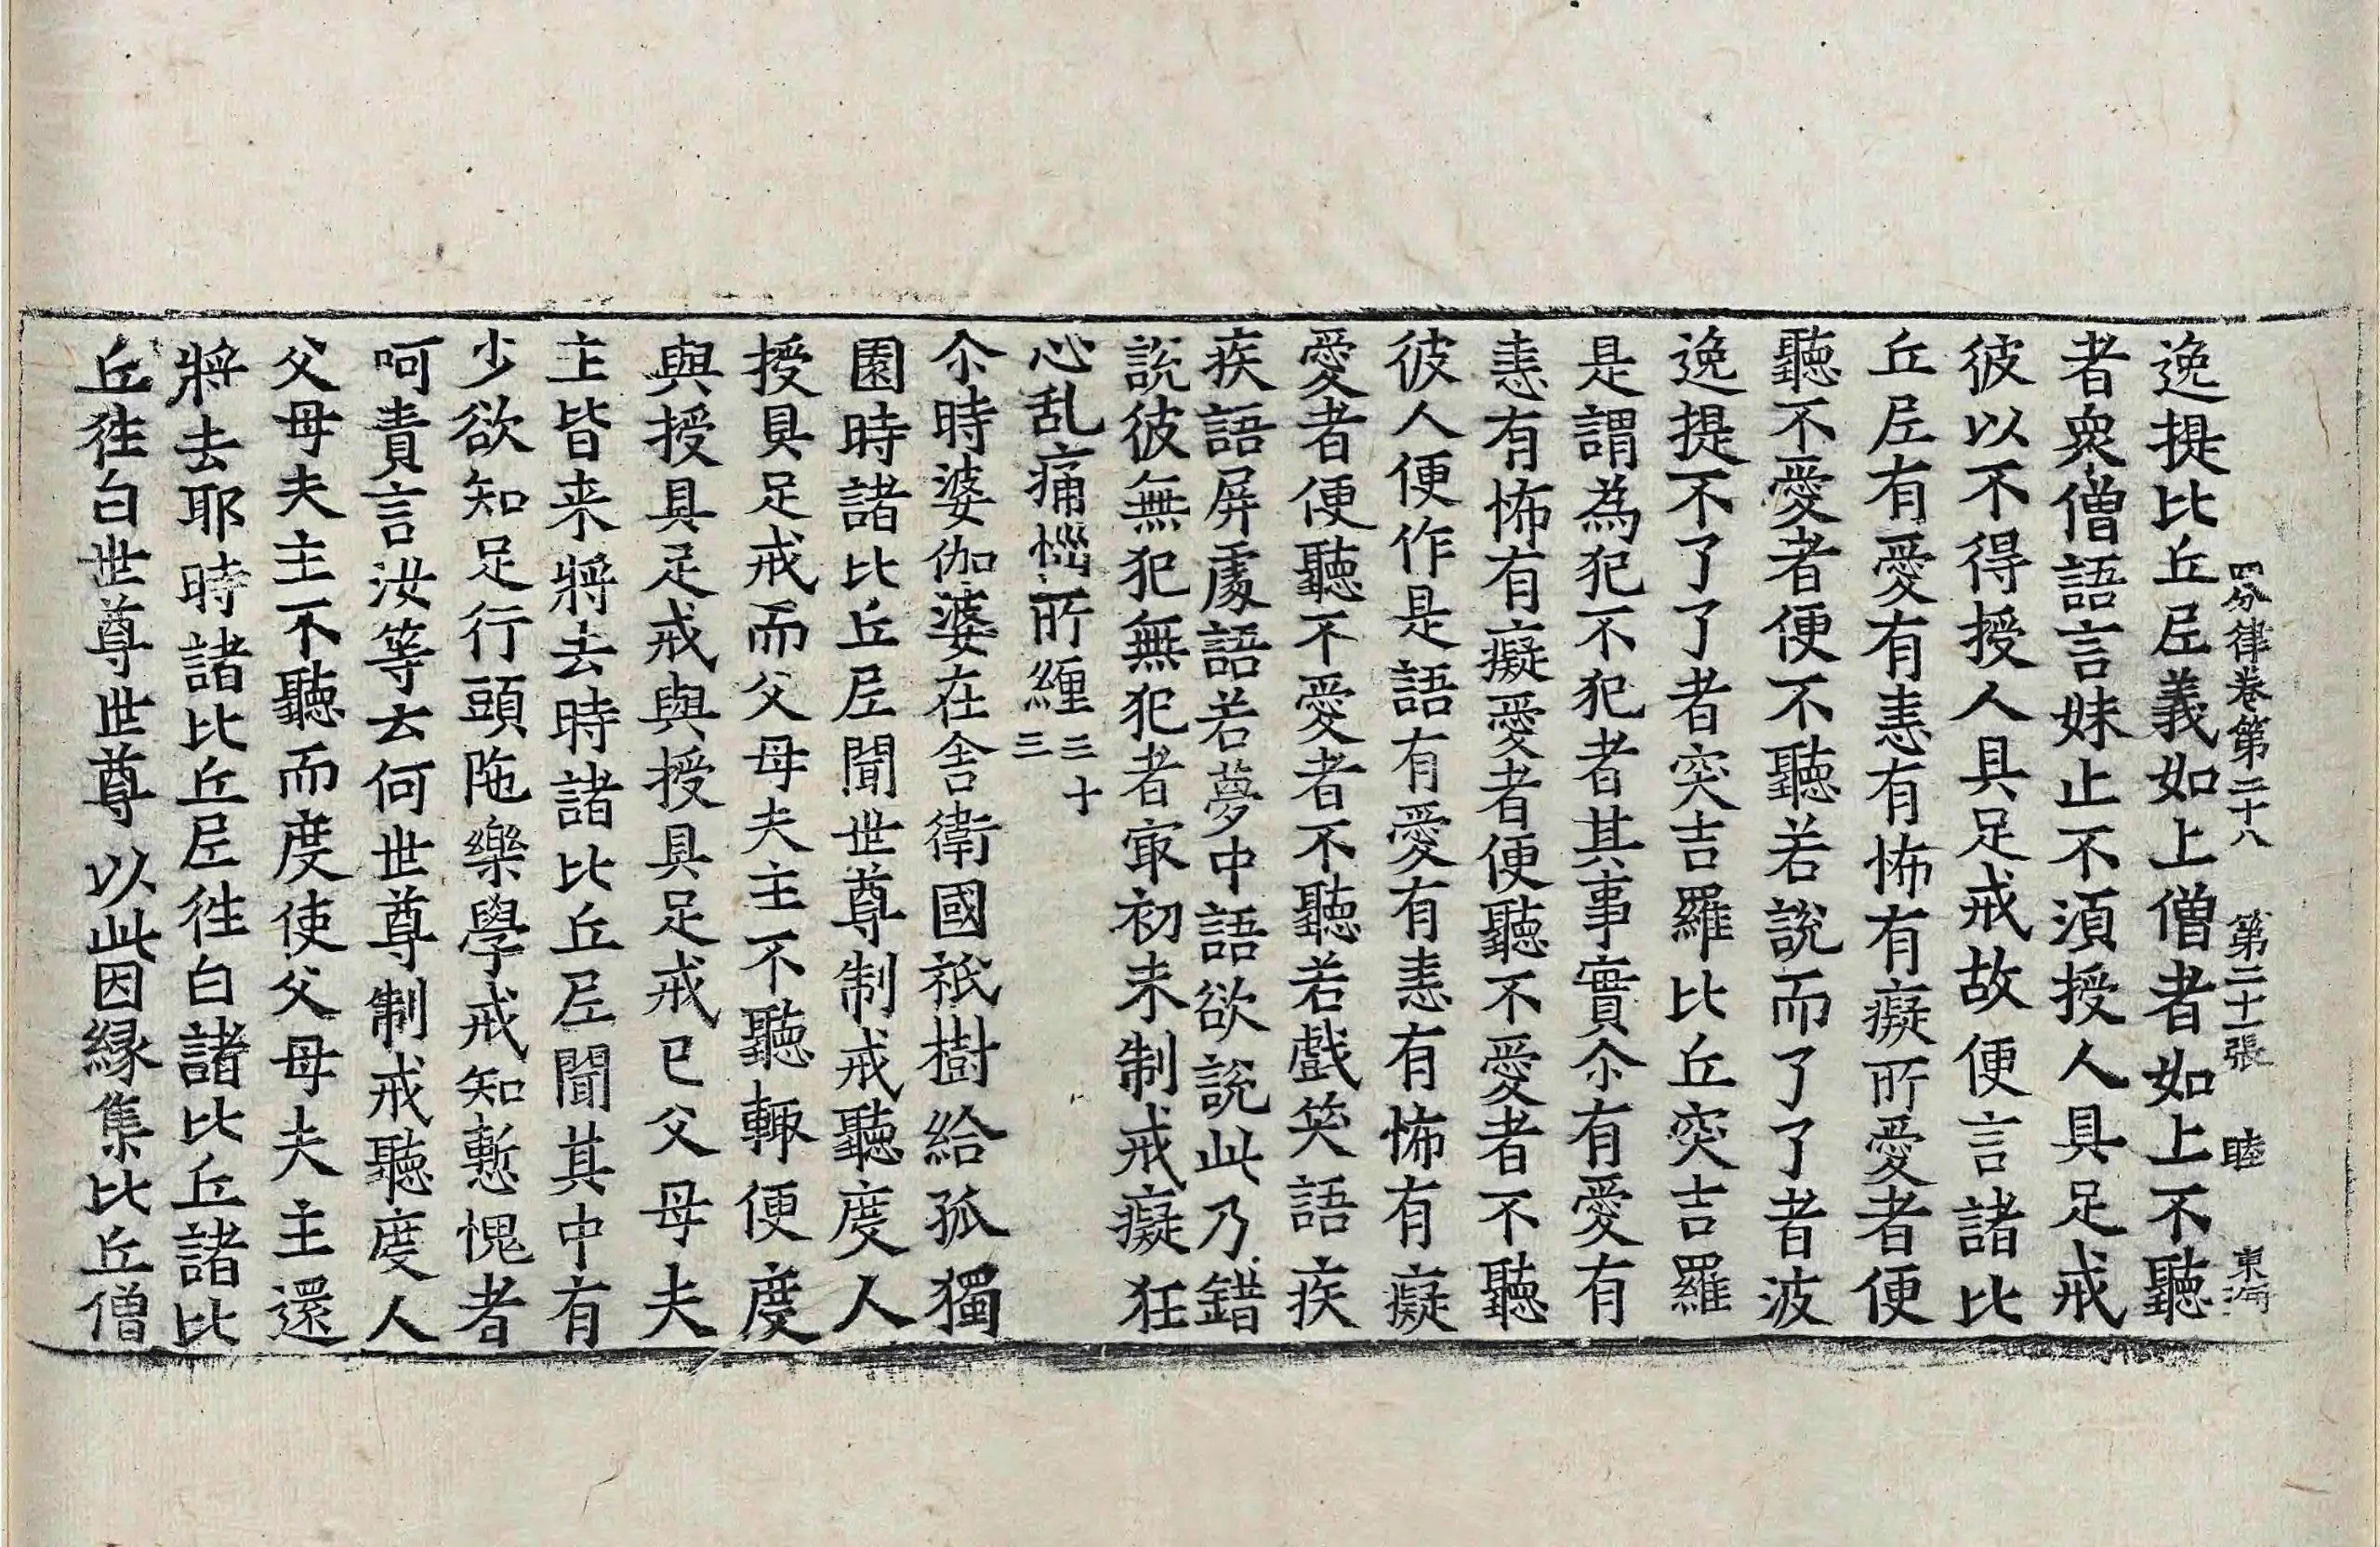 四分律卷第二十八　第二十二張　睦　東海
逸提比丘尼義如上僧者如上不聽
者衆僧語言妹止不湏授人具足戒
彼以不得授人具足戒故便言諸比
丘尼有愛有恚有怖有癡所愛者便
聽不愛者便不聽若說而了了者波
逸提不了了者突吉羅比丘突吉羅
是謂為犯不犯者其事實尒有愛有
恚有怖有癡愛者便聽不愛者不聽
彼人便作是語有愛有恚有怖有癡
愛者便聽不愛者不聽若戲笑語疾
疾語屏處語若夢中語欲說此乃錯
說彼無犯無犯者㝡初未制戒癡狂
心乱痛惱所纏三十三
尒時婆伽婆在舍衛國祇樹給孤獨
園時諸比丘尼聞世尊制戒聽度人
授具足戒而父母夫主不聽輙便度
與授具足戒與授具足戒已父母夫
主皆来將去時諸比丘尼聞其中有
少欲知足行頭陁樂學戒知慙愧者
呵責言汝等云何世尊制戒聽度人
父母夫主不聽而度使父母夫主還
將去耶時諸比丘尼徃白諸比丘諸比
丘徃白世尊世尊以此因縁集比丘僧